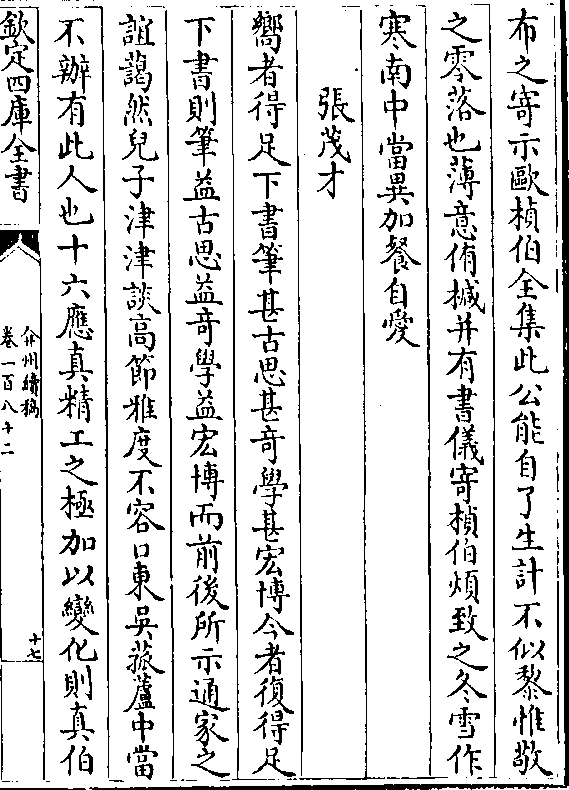 布之寄示歐楨伯全集此公能自了生計不似黎惟敬
之零落也薄意侑椷并有書儀寄楨伯煩致之冬雪作
寒南中當異加餐自愛
張茂才
嚮者得足下書筆甚古思甚竒學甚宏博今者復得足
下書則筆益古思益竒學益宏博而前後所示通家之
誼藹然兒子津津談高節雅度不容口東吳菰蘆中當
不辦有此人也十六應真精工之極加以變化則真伯
欽定四庫全書
弇州續稿
卷一百八十二
十七